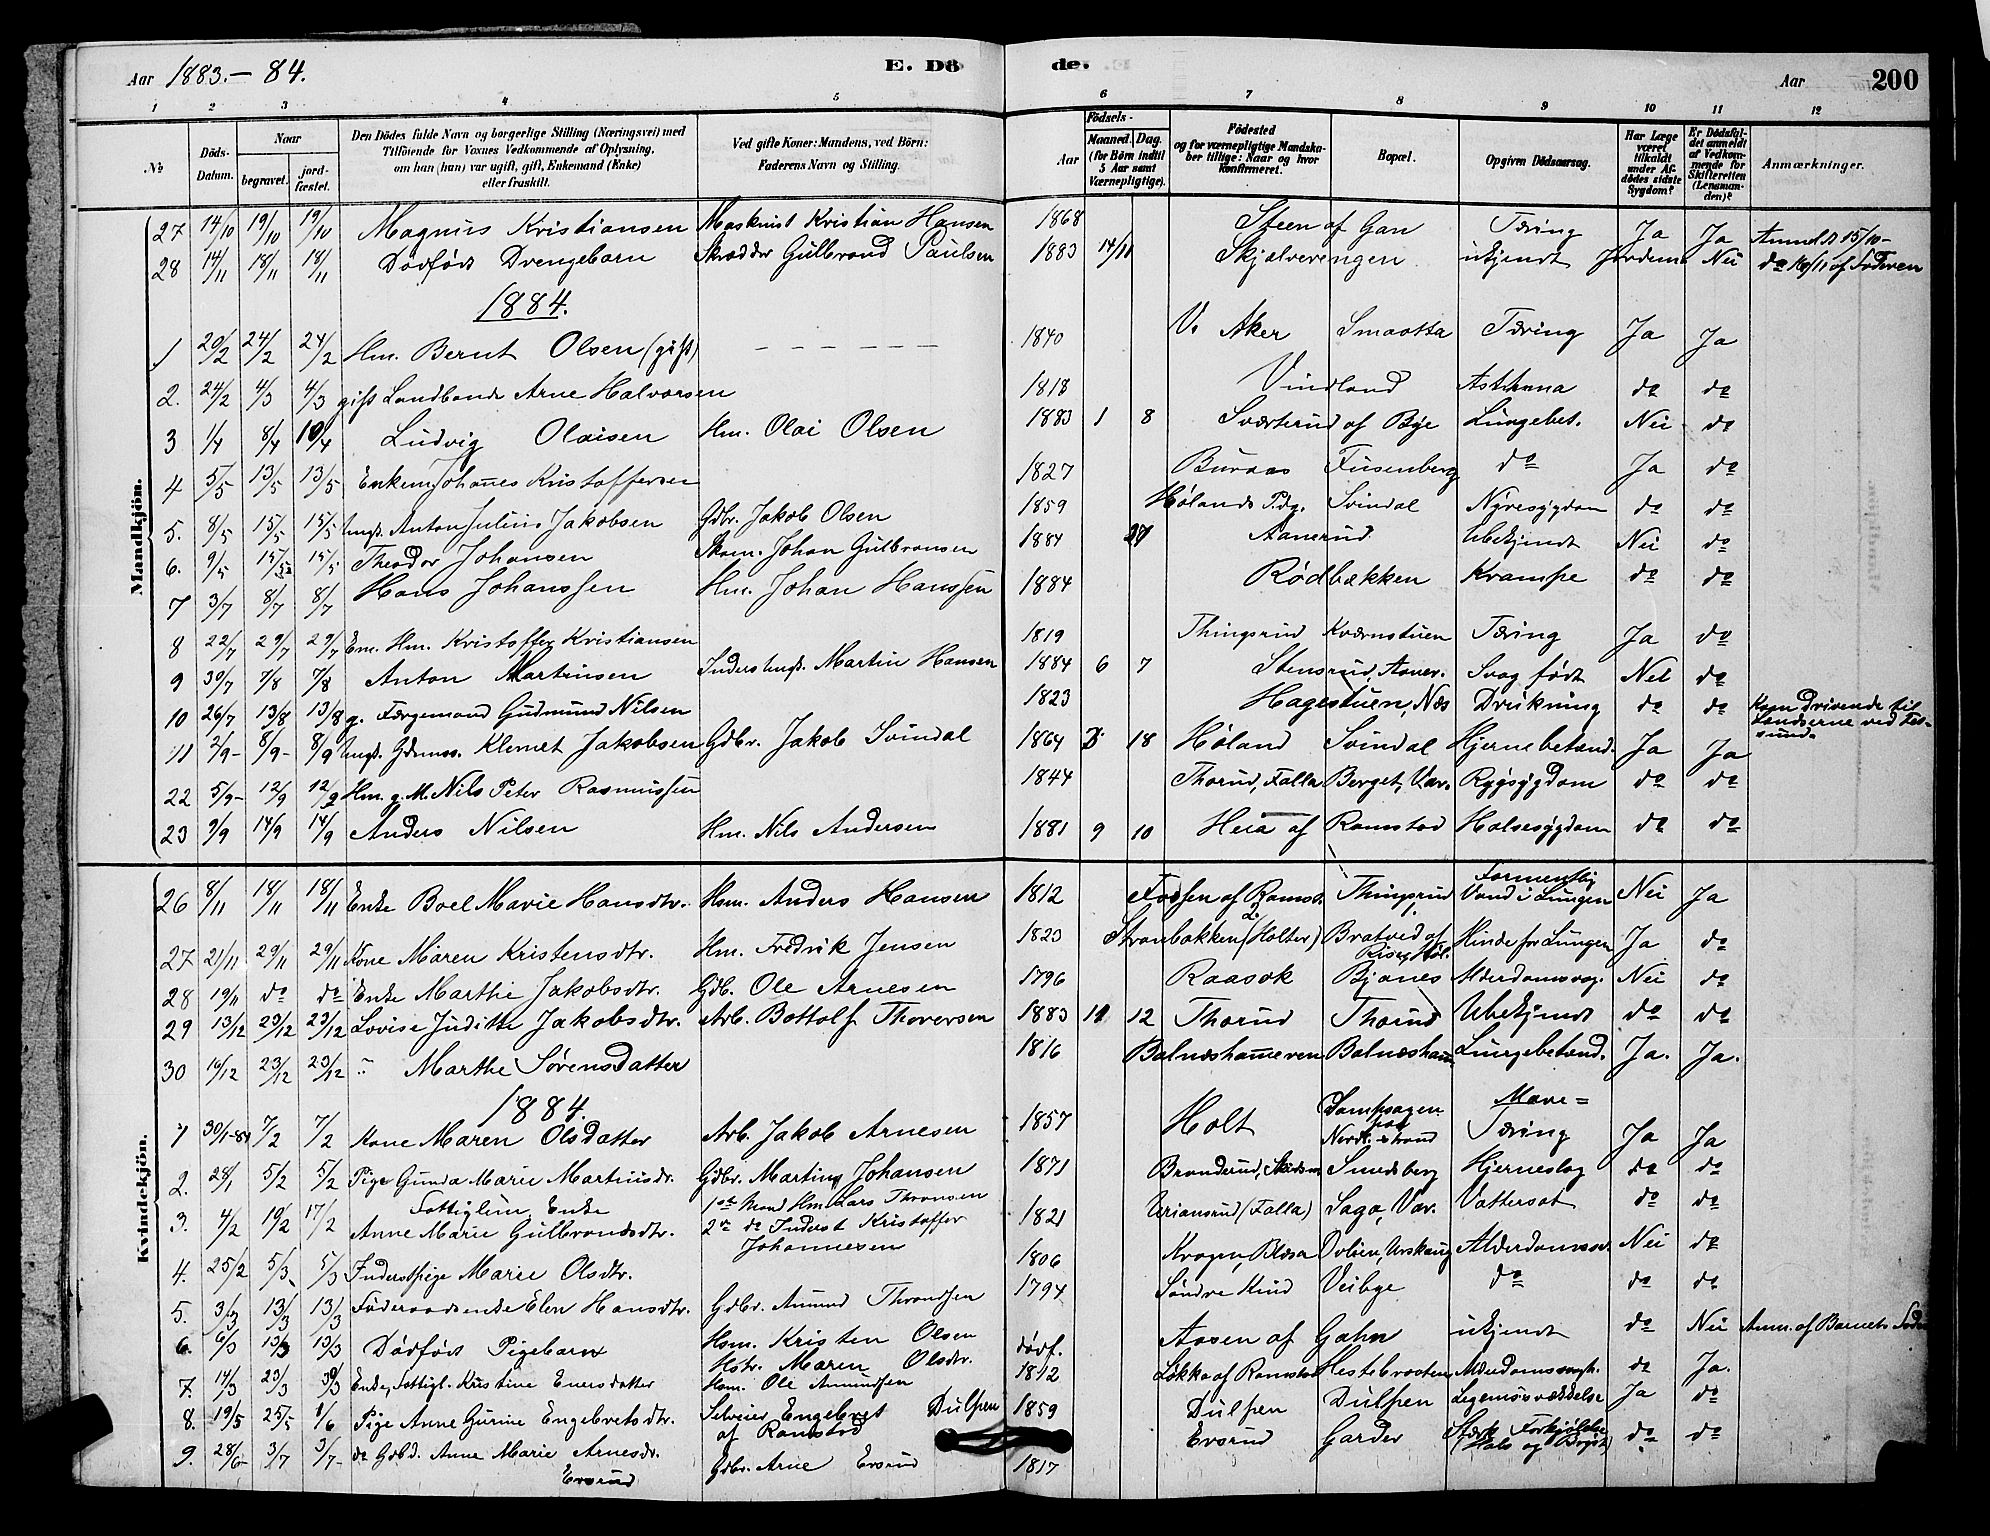 Aar 1883.-84. E. Dö de. E. Aar 200
1 2 3 4 5 6 7 8 9 10 11 12
№ Döds-Datum. Naar begravet. jordfæstet. Den Dödes fulde Navn og borgerlige Stilling (Næringsvei) med Tilföiende for Voxnes Vedkommende af Oplysning, om han (hun) var ugift, gift, Enkemand (Enke) eller fraskilt. Ved gifte Koner: Mandens, ved Börn: Faderens Navn og Stilling. Födsels- Aar Maaned. Dag. (for Börn indtil 5 Aar samt Værnepligtige). Födested og for værnepligtige Mandskaber tillige: Naar og hvor konfirmeret. Bopæl. Opgiven Dödsaarsag. Har Læge været tilkaldt under Afdödes sidste Sygdom? Er Dödsfaldet anmeldt af Vedkommende for Skifteretten (Lensmanden)? Anmærkninger.
Mandkjön.
27 14/10 19/10 19/10 Magnus Kristiansen Maskinist Kristian Hansen 1868 Steen af Gan Tæring Ja Ja Anmeldt 15/10-
28 14/11 18/11 18/11 Dödfödt Drengebarn Skrædder Gulbrand Paulsen 1883 14/11 Skjælverengen ukjendt Jordem. Nei do 16/11 af Faderen
1884.
1 20/2 24/2 24/2 Hm. Bernt Olsen (gift) 1840 V. Aker Smaotta Tæring Ja Ja
2. 24/2 4/3 4/3 gift Landhandl. Arne Halvorsen 1818 Vindland Asthma do do
3 1/4 8/4 10/4 Ludvig Olaisen Hm. Olai Olsen 1883 1 8 Sværterud af Bye Lungebet. Nei do
4 5/5 13/5 13/5 Enkem. Johanes Kristoffersen 1827 Buraas Fusenberg do Ja do
5. 8/5 15/5 15/5 Ungk. Anton Julius Jakobsen Gdbr. Jakob Olsen 1859 Hølands Pdg. Svindal Nyresygdom do do
6. 9/5 15/5 15/5 Theodor Johansen Skom. Johan Gulbransen 1884 27 Aanerud Ubekjendt Nei do
7 3/7 8/7 8/7 Hans Johanssen Hm. Johan Hanssen 1884 Rødbækken Krampe do do
8 22/7 29/7 29/7 Em. Hm. Kristoffer Kristiansen 1819 Thingsrud Kværnstuen Tæring Ja do
9 30/7 7/8 7/8 Anton Martinsen Inderst Ungk. Martin Hansen 1884 6 7 Stensrud, Svag født Nei do
10 26/7 13/8 13/8 g. Færgemand Gudmund Nilsen 1823 Hagestuen, Næs Drukning do do Kom drivende til Landserne ved Fetsund.
11 2/9- 8/9- 8/9 Ungk. Klemet Jakobsen Gdbr. Jakob Svindal 1864 18 Høland Svindal Hjernebetænd. Ja Ja
22 5/9- 12/9 12/9 Hm. g. M. Nils Peter Rasmussen 1844 Thorud, Falla Berget, Var. Rygsygdom do do
23 9/9 14/9 14/9 Anders Nilsen Hm. Nils Andersen 1881 9 10 Heia af Ramstad Halsesygdom do do
Kvindekjön.
26 8/11 18/11 18/11 Enke Boel Marie Hansdtr. Hsm. Anders Hansen 1812 Fossen af Ramst. Thingsrud Formentlig Vand i Lungen Nei Ja
27 21/11 29/11 29/11 Kone Maren Kristensdtr. Hm. Fredrik Jensen 1823 (Holter) Bratved af Hinde for Lungen Ja do
28 19/11 do do Enke Marthe Jakobsdtr. Gdb. Ole Arnesen 1796 Raasok Bjanes Alderdomssvag. Nei do
29 13/12 23/12 23/12 Lovise Juditte Jakobsdtr. Arb. Bottolf Thoversen 1883 11 12 Thorud Thorud Ubekjendt do do
30 16/12 23/12 23/12 Marthe Sørensdatter 1816 Balnæshameren Balnæsham. Lungebetænd. Ja. Ja.
1884.
1 30/1-84 7/2 7/2 Kone Maren Olsdatter Arb. Jakob Arnesen 1857 Holt Dampsagen paa Nerdrestrand Mave= Tæring Ja Ja
2. 28/1 5/2 5/2 Pige Gunda Marie Martinsdr. Gdbr. Martin Johansen 1871 Branderud, Smedsberg Hjerneslag do do
3. 4/2 19/2 17/2 Fattiglem, Enke Anne Marie Gulbrandsdtr. 1ste Mand Hm. Lars Thronsen 2den do Inderst Kristoffer Johannesen 1821 Urianrud (Falla) Saga, Var. Vattersot do do
4. 25/2 5/3 5/3 Inderstpige Marie Olsdtr. 1806 Krogen, Blæsa Ovlien, Urskoug Alderdomssv. Nei do
5. 3/3 13/3 13/3 Føderaadsenke Elen Hansdtr. Gdbr. Amund Throndsen 1794 Søndre Hind Veibye do do do
6. 6/3 13/3 13/3 Dødfødt Pigebarn Hsm. Kristen Olsen Hstr. Maren Olsdtr. dødf. Aasen af Gahn ukjendt do Nei Anm. af Barnets Fader
7. 14/3 23/3 30/3 Enke, Fattigl. Kristine Enersdatter Hsm. Ole Amundsen 1812 Løkka af Ramstad Hestebraaten Alderdomssvagh. do Ja.
8. 19/5 25/5 1/6 Pige Anne Gurine Engebretsdtr. Selveier Engebret Dulpen af Ramstad 1859 Dulpen Dulpen Legemssvækkelse Ja do
9. 28/6- 3/7 3/7- do Gdbd. Anne Marie Arnesdr. Ersrud Gdbr. Arne Ersrud 1817 Ersrud Garder Stærk Forkjølelse (Hals og Bryst) do do